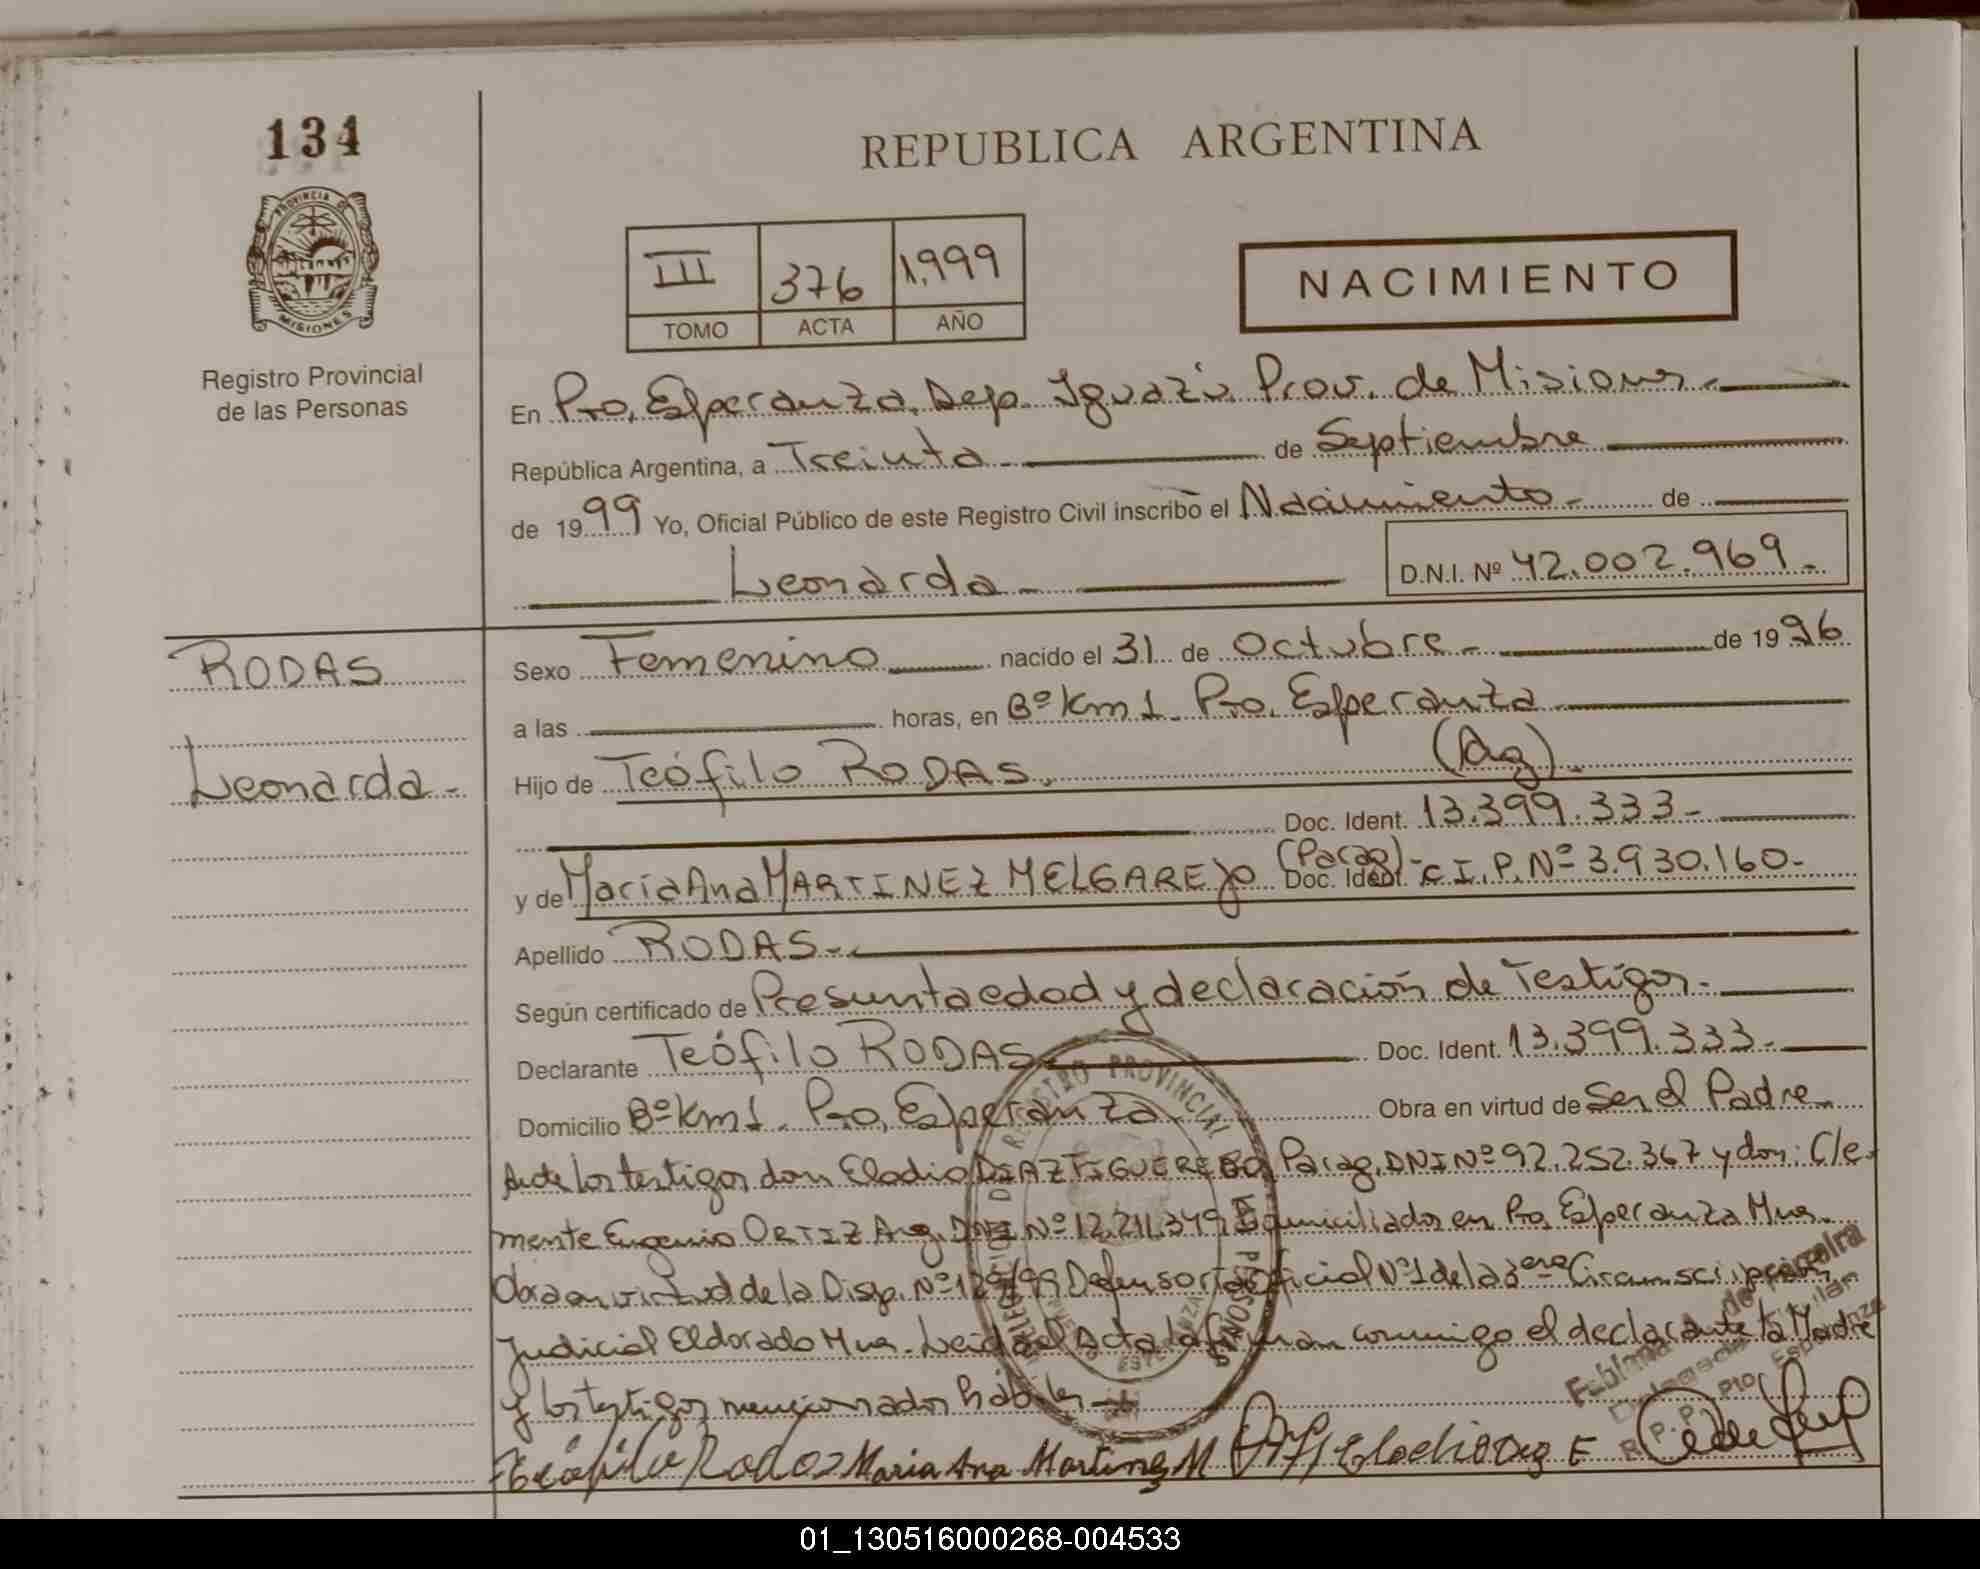 134
REPUBLICA ARGENTINA
PROVINCIA DE
MISIONES
Registro Provincial
de las Personas
III 376 1,999
TOMO ACTA AÑO
NACIMIENTO
En Pto. Esperanza. Dep. Iguazú. Prov. de Misiones.
República Argentina, a Treinta de Septiembre
de 1999 Yo, Oficial Público de este Registro Civil inscribo el Nacimiento.- de
Leonarda.- D.N.I. Nº 42.002.969.-
RODAS
Leonarda.-
Sexo Femenino nacido el 31 de Octubre.- de 1996
a las horas, en Bº Km 1. Pto. Esperanza
Hijo de Teófilo RODAS. (Arg).
Doc. Ident. 13.399.333.-
y de María Ana MARTINEZ MELGAREJO (Parag)- Doc. Ident. C.I.P. Nº 3.930.160.-
Apellido RODAS.-
Según certificado de Presunta edad y declaración de Testigos.-
Declarante Teófilo RODAS Doc. Ident. 13.399.333.-
Domicilio Bº Km 1. Pto. Esperanza Obra en virtud de Ser el Padre.
Ante los testigos don Eladio DIAZ FIGUEREDO, Parag. DNI Nº 92.252.367 y don: Cle-
mente Eugenio ORTIZ Arg. DNI Nº 12.211.349 Domiciliados en Pto. Esperanza Mnes.
Obra en virtud de la Disp. Nº 129/99 Defensoría Oficial Nº 1 de la 3era Circunscripción
Judicial Eldorado Mnes. Leida el Acta la firman conmigo el declarante la Madre
y los testigos mencionados hábiles
REGISTRO PROVINCIAL
Teófilo Rodas Maria Ana Martinez M Eladio Diaz F
R. P. P. Pto. Esperanza
01_130516000268-004533